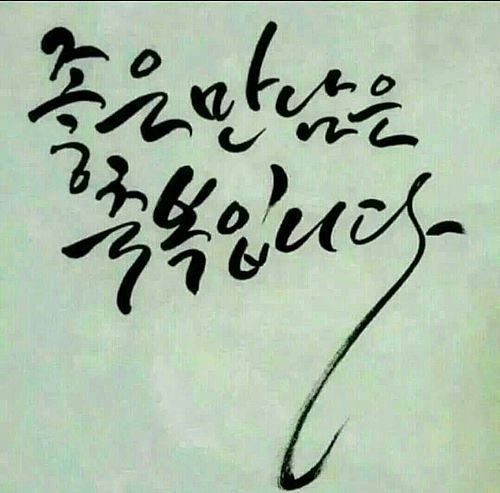 좋은 만남은
축복입니다